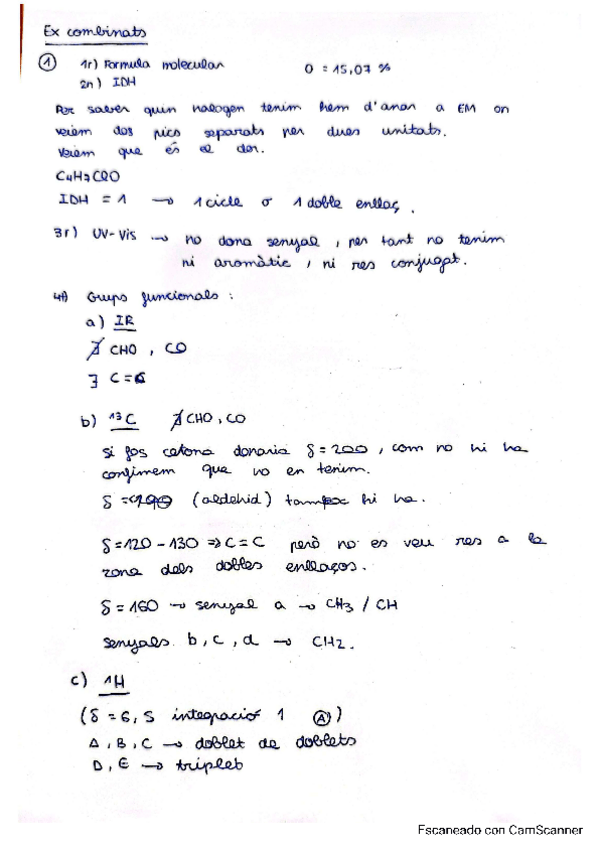 Ex combinats
① 1r) Formula molecular O = 15,07 %
2n) IDH
Per saber quin halogen tenim hem d'anar a EM on
veiem dos pics separats per dues unitats.
Veiem que és el clor.
C4H7ClO
IDH = 1 → 1 cicle o 1 doble enllaç.
3r) UV-Vis → no dona senyal, per tant no tenim
ni aromàtic, ni res conjugat.
4t) Grups funcionals:
a) IR
∄ CHO, CO
∃ C=C
b) 13C ∄ CHO, CO
Si fos cetona donaria δ=200, com no hi ha
confimem que no en tenim.
δ = <190 (aldehid) tampoc hi ha.
δ=120-130 ⇒ C=C però no es veu res a la
zona dels dobles enllaços.
δ=160 → senyal a → CH3 / CH
senyals b, c, d → CH2.
c) 1H
(δ = 6, 5 integració 1 Ⓐ)
A, B, C → doblet de doblets
D, E → triplet
Escaneado con CamScanner